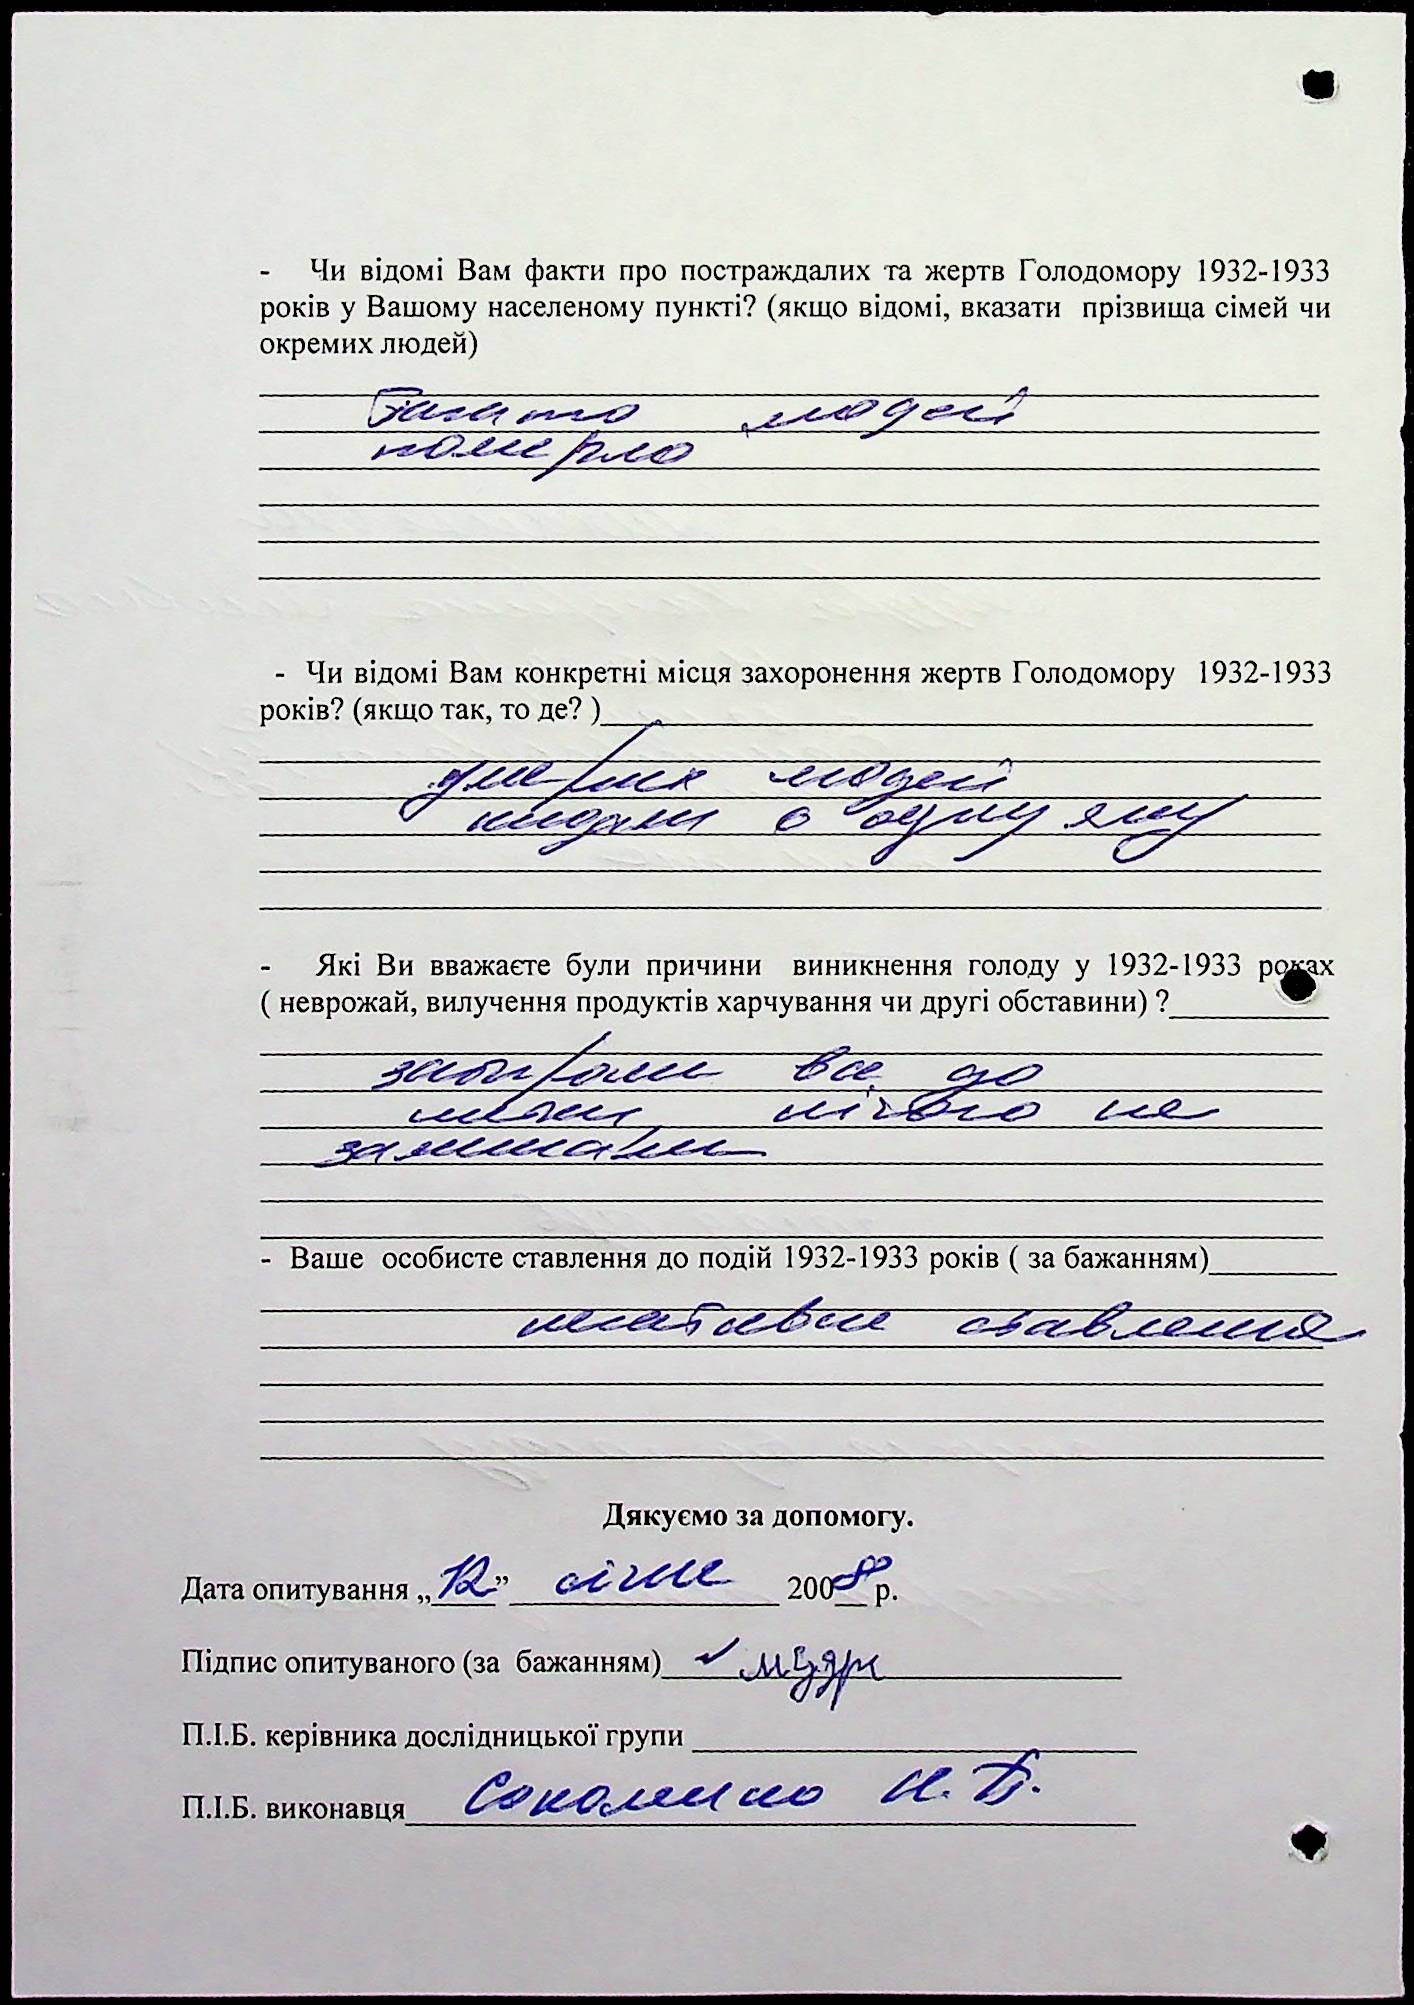 - Чи відомі Вам факти про постраждалих та жертв Голодомору 1932-1933
років у Вашому населеному пункті? (якщо відомі, вказати прізвища сімей чи
окремих людей)
Багато людей
померло
- Чи відомі Вам конкретні місця захоронення жертв Голодомору 1932-1933
років? (якщо так, то де? )
умерших людей
кидали в одну яму
- Які Ви вважаєте були причини виникнення голоду у 1932-1933 роках
( неврожай, вилучення продуктів харчування чи другі обставини) ?
забирали все до
нічого не
залишали
- Ваше особисте ставлення до подій 1932-1933 років ( за бажанням)
негативне ставлення
Дякуємо за допомогу.
Дата опитування „12” січня 2008 р.
Підпис опитуваного (за бажанням)
П.І.Б. керівника дослідницької групи
П.І.Б. виконавця